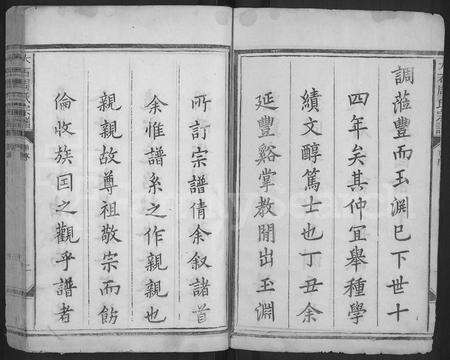 調蒞豐而玉淵已下世十
四年矣其仲宜舉種學
績文醇篤士也丁丑余
延豐谿掌教閒出玉淵
所訂宗譜倩余叙諸首
余惟譜系之作親親也
親親故尊祖敬宗而飭
倫收族囯之觀乎譜者